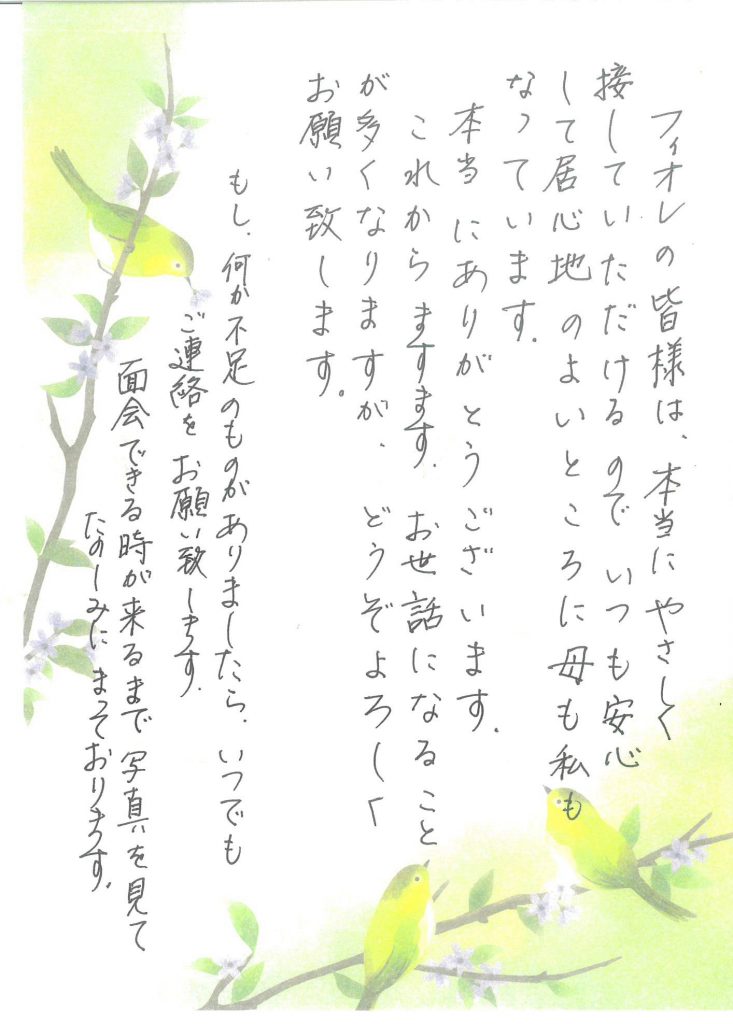 フィオレの皆様は、本当にやさしく
接していただけるので いつも安心
して居心地のよいところに母も私も
なっています.
本当にありがとうございます.
これから ますます. お世話になること
が多くなりますが、どうぞよろしく
お願い致します。
もし、何か不足のものがありましたら、いつでも
ご連絡を お願い致します.
面会できる時が来るまで 写真を見て
たのしみに まっております.